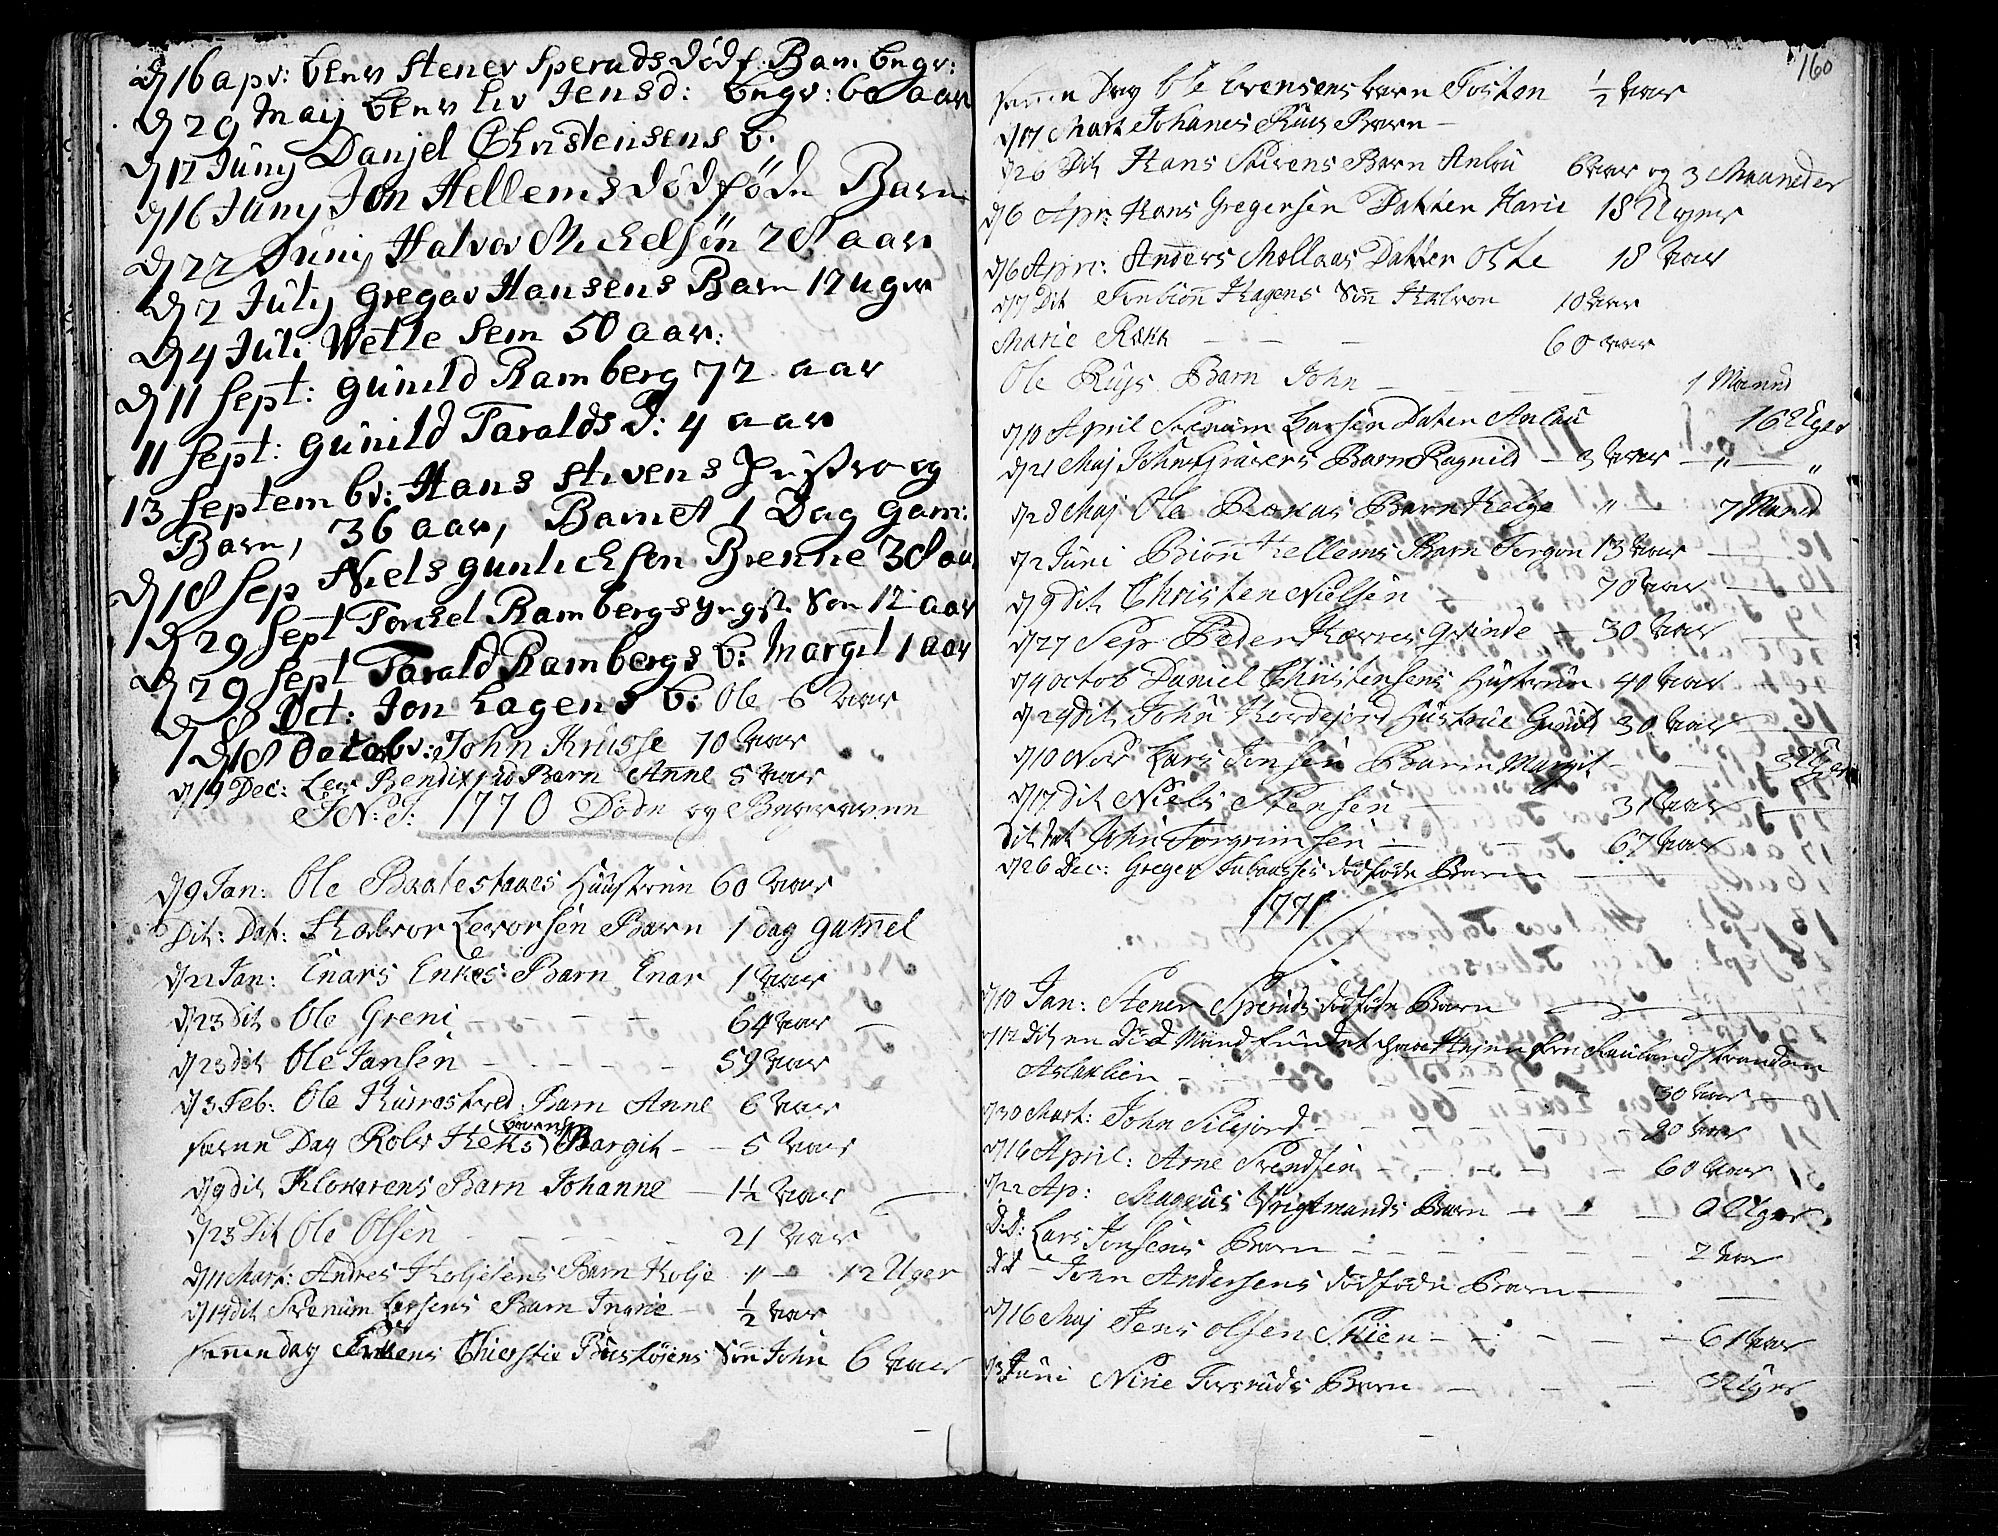 d 16 apr: blev Stener Sperudsdødf. Barn begr:
d 29 Maij blev Liv Jensd: begr: 60 aar
d 12 Junij Danjel Christensens b:
d 16 Junij Jon Hellems dødføde Barn
d 22 Junij Halvor Michelsøn 28 aar
d 2 July Gregar Hansens Barn 12 uger
d 4 Juli Vetle Sem 50 aar:
d 11 Sept: Gunild Ramberg 72 aar
11 Sept: Gunild Taralds d: 4 aar
13 Septembr: Hans Stivens Hustro og
Barn, 36 aar, Barnet 1 Dag gam:
d 18 Sep Niels Gunlichsen Brenne 38 aar
d 29 Sept Torkel Rambergs yngst. Søn 12 aar
d 29 Sept Tarald Rambergs b: Margit 1 aar
d 8 Oct: Jon Lagens b: Ole 6 aar
d 18 Octobr: John Krusse 70 aar
d 19 Dec: Lev Bendixruds Barn Anne 5 aar
J: N: J: 1770 Døde og Begravne
d 9 Jan: Ole Baatestaaes Huustrue 60 aar
Dit: Dat: Halvor Levorsen Barn 1 dag gamel
d 22 Jan: Enars Enkes Barn Enar 1 aar
d 23 dit Ole Greni - - - 64 aar
d 23 dit Ole Jansen - - - 59 aar
d 3 Feb: Ole Barn Anne 6 aar
samme Dag Rolv Heks Barns Bargit - - 5 aar
d 9 dit Klovarens Barn Johanne - 1½ aar
d 23 Dit Ole Olsen - - - 21 aar
d 11 Mart: Andres Koljesens Barn Kolje " - 12 Uger
d 14 dit Svenum Larsens Barn Ingrie - ½ aar
samme dag Chierstie Søn John 6 aar
160
samme Dag Ole Evensens barn Tosten ½ aar
d 17 Mart Johanes Ruus Barn -
d 26 Dit Hans Stivens Barn Anlou 6 aar og 3 Maaneder
d 6 Apr: Hans Gregersen Datter Karie 18 Uger
d 6 Apr: Anders Mollaas Datter Oste 18 aar
d 7 Dit Hagens Søn Halvor 10 aar
Marie Røkk - - - 60 aar
Ole Ruys Barn John - - - 1 Maaned
d 10 April Svenum Larsen Daten Anlau 16 Uger
d 21 Maj John Gravers Barn Ragnild - 3 aar - " - "
d 28 Maj Ole Barn Helge " - 7 Maned
d 2 Juni Biøn Hellems Barn Torgon 13 aar
d 9 dit Christen Nielsen - 70 aar
d 27 Sep Peder Grinde - 30 aar
d 4 octob Daniel Christensens Hustrue 40 aar
d 29 dit John Kordejord Hustrue Gunild 30 aar
d 10 Nov Lars Jonsen Barn Margit - - 3 Uger
d 17 dit Niels Stensen - 31 aar
dit dat John Torgrimsen - 67 aar
d 26 Dec: Greger dødføde Barn
1771
d 10 Jan: Stener Speruds dødføde Barn
d 12 dit en død Mand fundet
Aslaklien - - - 30 aar
d 30 Mart: John Silejord - - - 90 aar
d 16 April: Arne Svendsen - - - 60 aar
d 22 Ap: Magnus Vrigtmands Barn - - 9 Uger
d: d: Lars Jonsens Barn - - - 2 aar
d d - John Andersens dødføde Barn -
d 16 Maj Jens Olsen Skien - - - 61 aar
d 3 Juni Nirie Torsruds Barn - - - 3 Uger